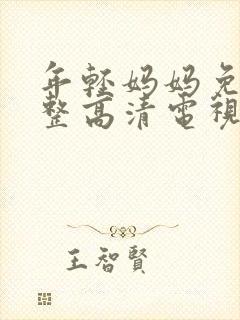 年輕妈妈免
整高清電視
王智賢